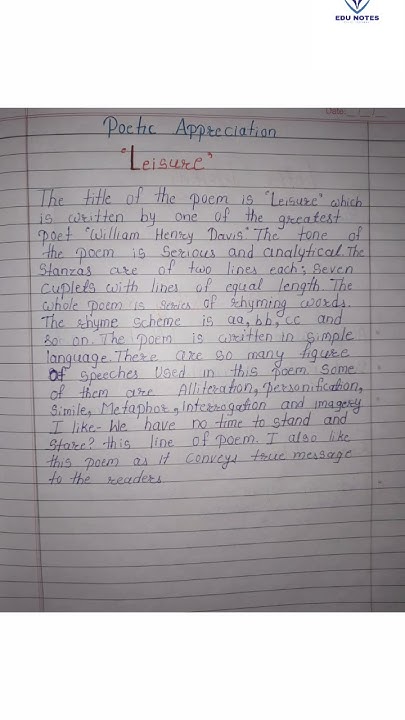 EDU NOTES
Date: / /
Poetic Appreciation
"Leisure"
The title of the poem is "Leisure" which
is written by one of the greatest
poet "William Henry Davis." The tone of
the poem is Serious and analytical. The
Stanzas are of two lines each; Seven
Cuplets with lines of equal length. The
whole poem is series of rhyming words.
The rhyme scheme is aa, bb, cc and
so on. The poem is written in simple
language. There are so many figure
of speeches Used in this poem. Some
of them are Alliteration, personification,
Simile, Metaphor, interrogation and imagery
I like- We have no time to stand and
Stare? this line of poem. I also like
this poem as it Conveys true message
to the readers